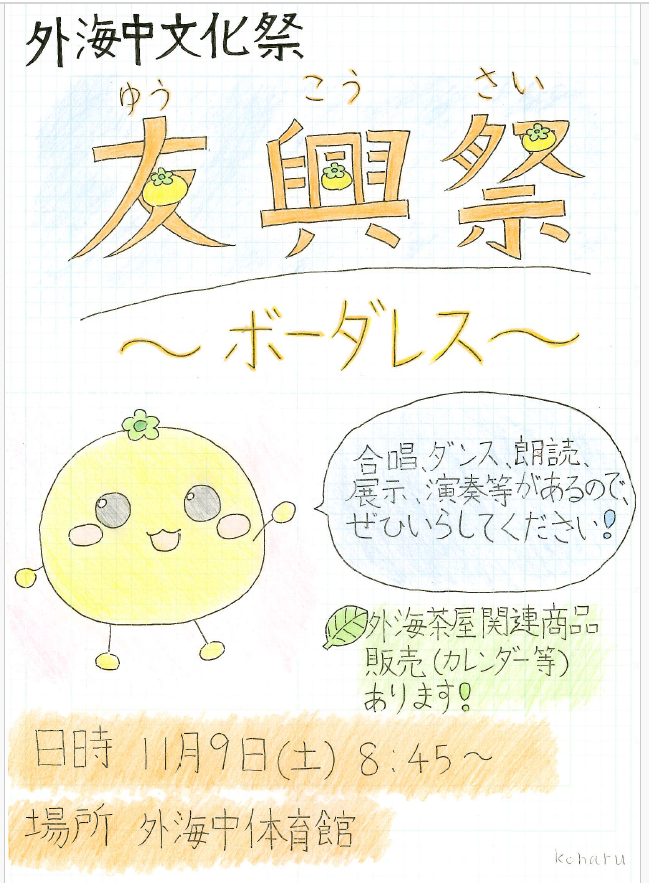 外海中文化祭
ゆう こう さい
友興祭
～ボーダレス～
合唱、ダンス、朗読、
展示、演奏等があるので、
ぜひいらしてください!
外海茶屋関連商品
販売(カレンダー等)
あります!
日時 11月9日(土) 8:45～
場所 外海中体育館
koharu